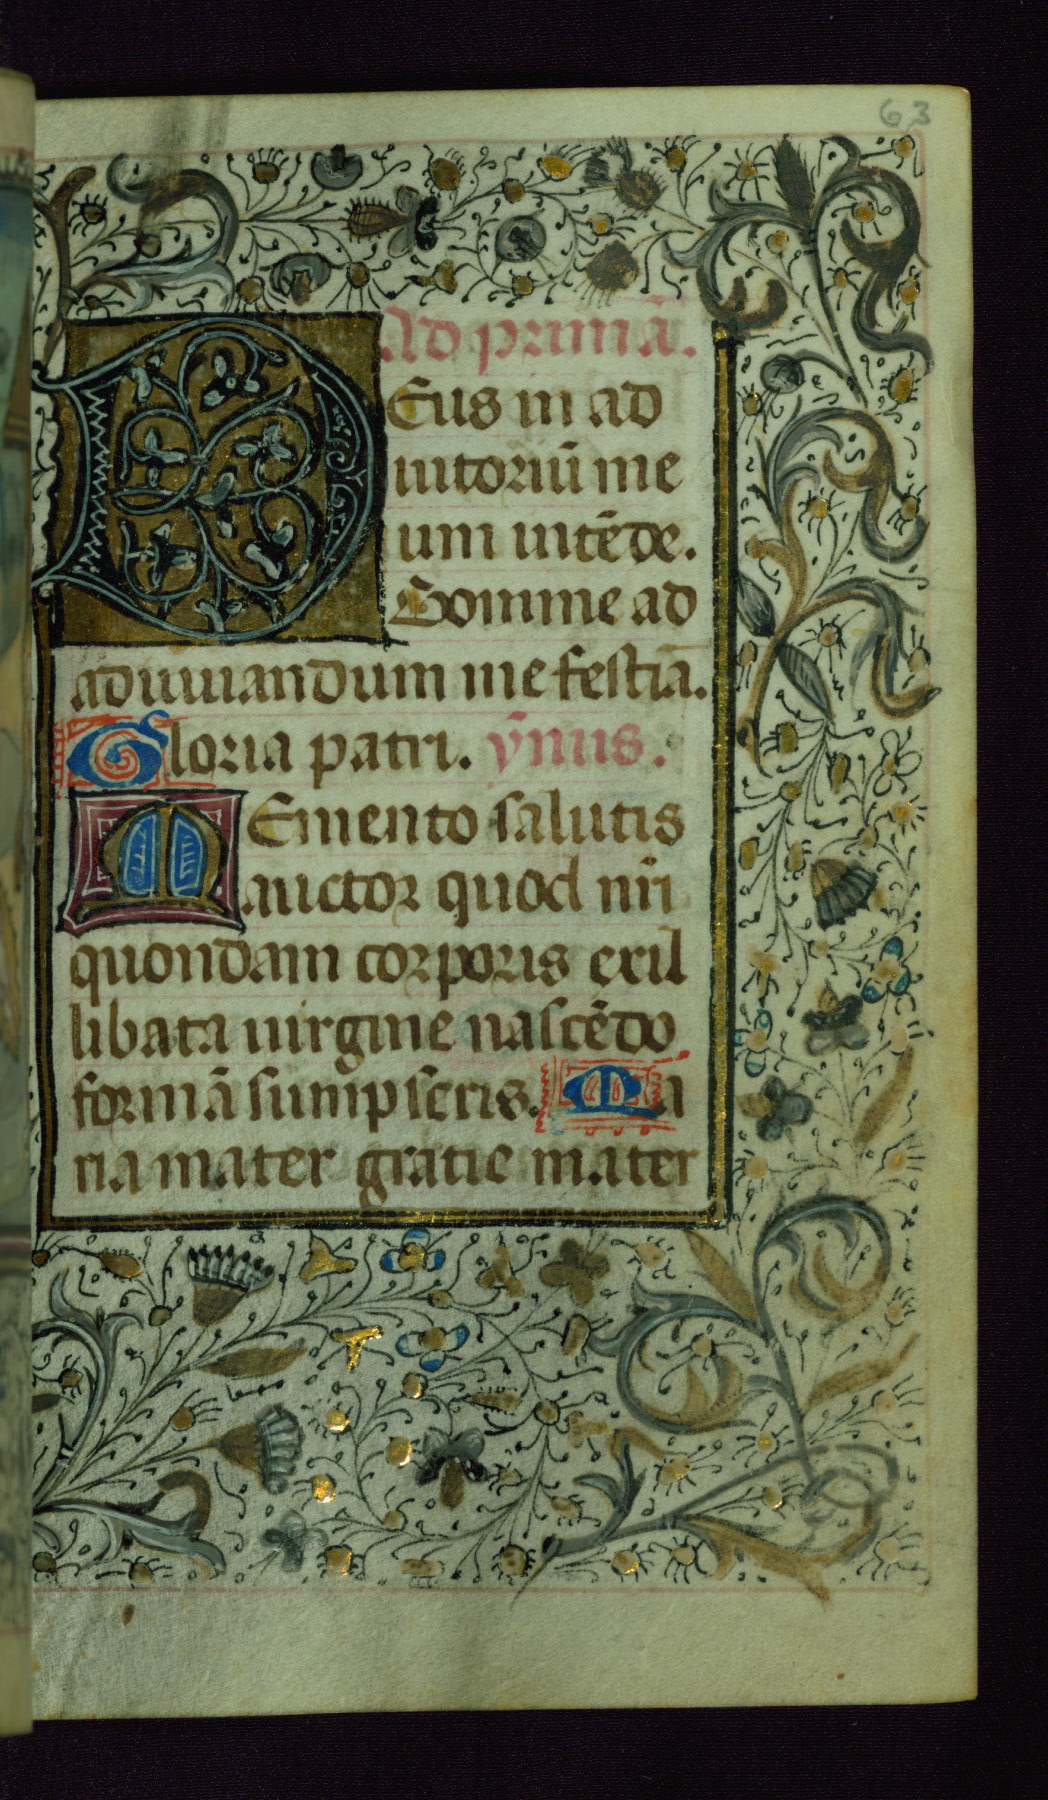 63
Ad primā.
DEus in ad
iutoriū me
um intēde.
Domine ad
adiuuandum me festiā.
Gloria patri. ẏmnus.
MEmento salutis
auctor quod nr̄i
quondam corporis exil
libata uirgine nascēdo
formā sumpseris. Ma
ria mater gratie mater